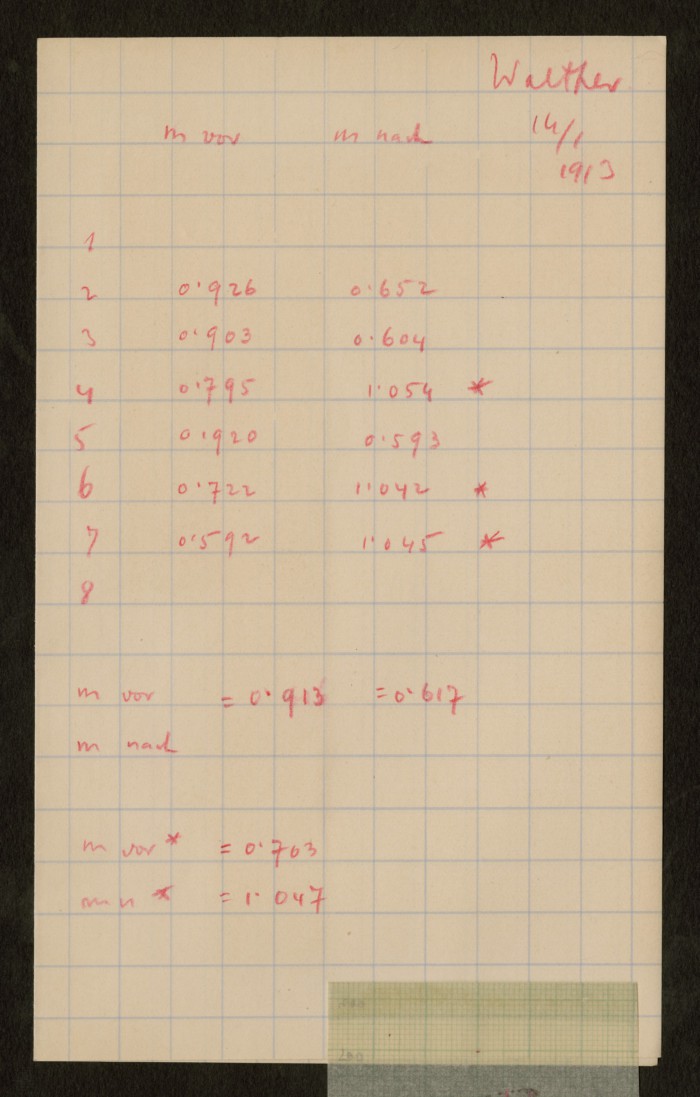 Walther
m vor m nach 14/1
1913
1
2 0·926 0·652
3 0·903 0·604
4 0·795 1·054 *
5 0·920 0·593
6 0·722 1·042 *
7 0·592 1·045 *
8
m vor = 0·913 = 0·617
m nach
m vor * = 0·703
m n * = 1·047